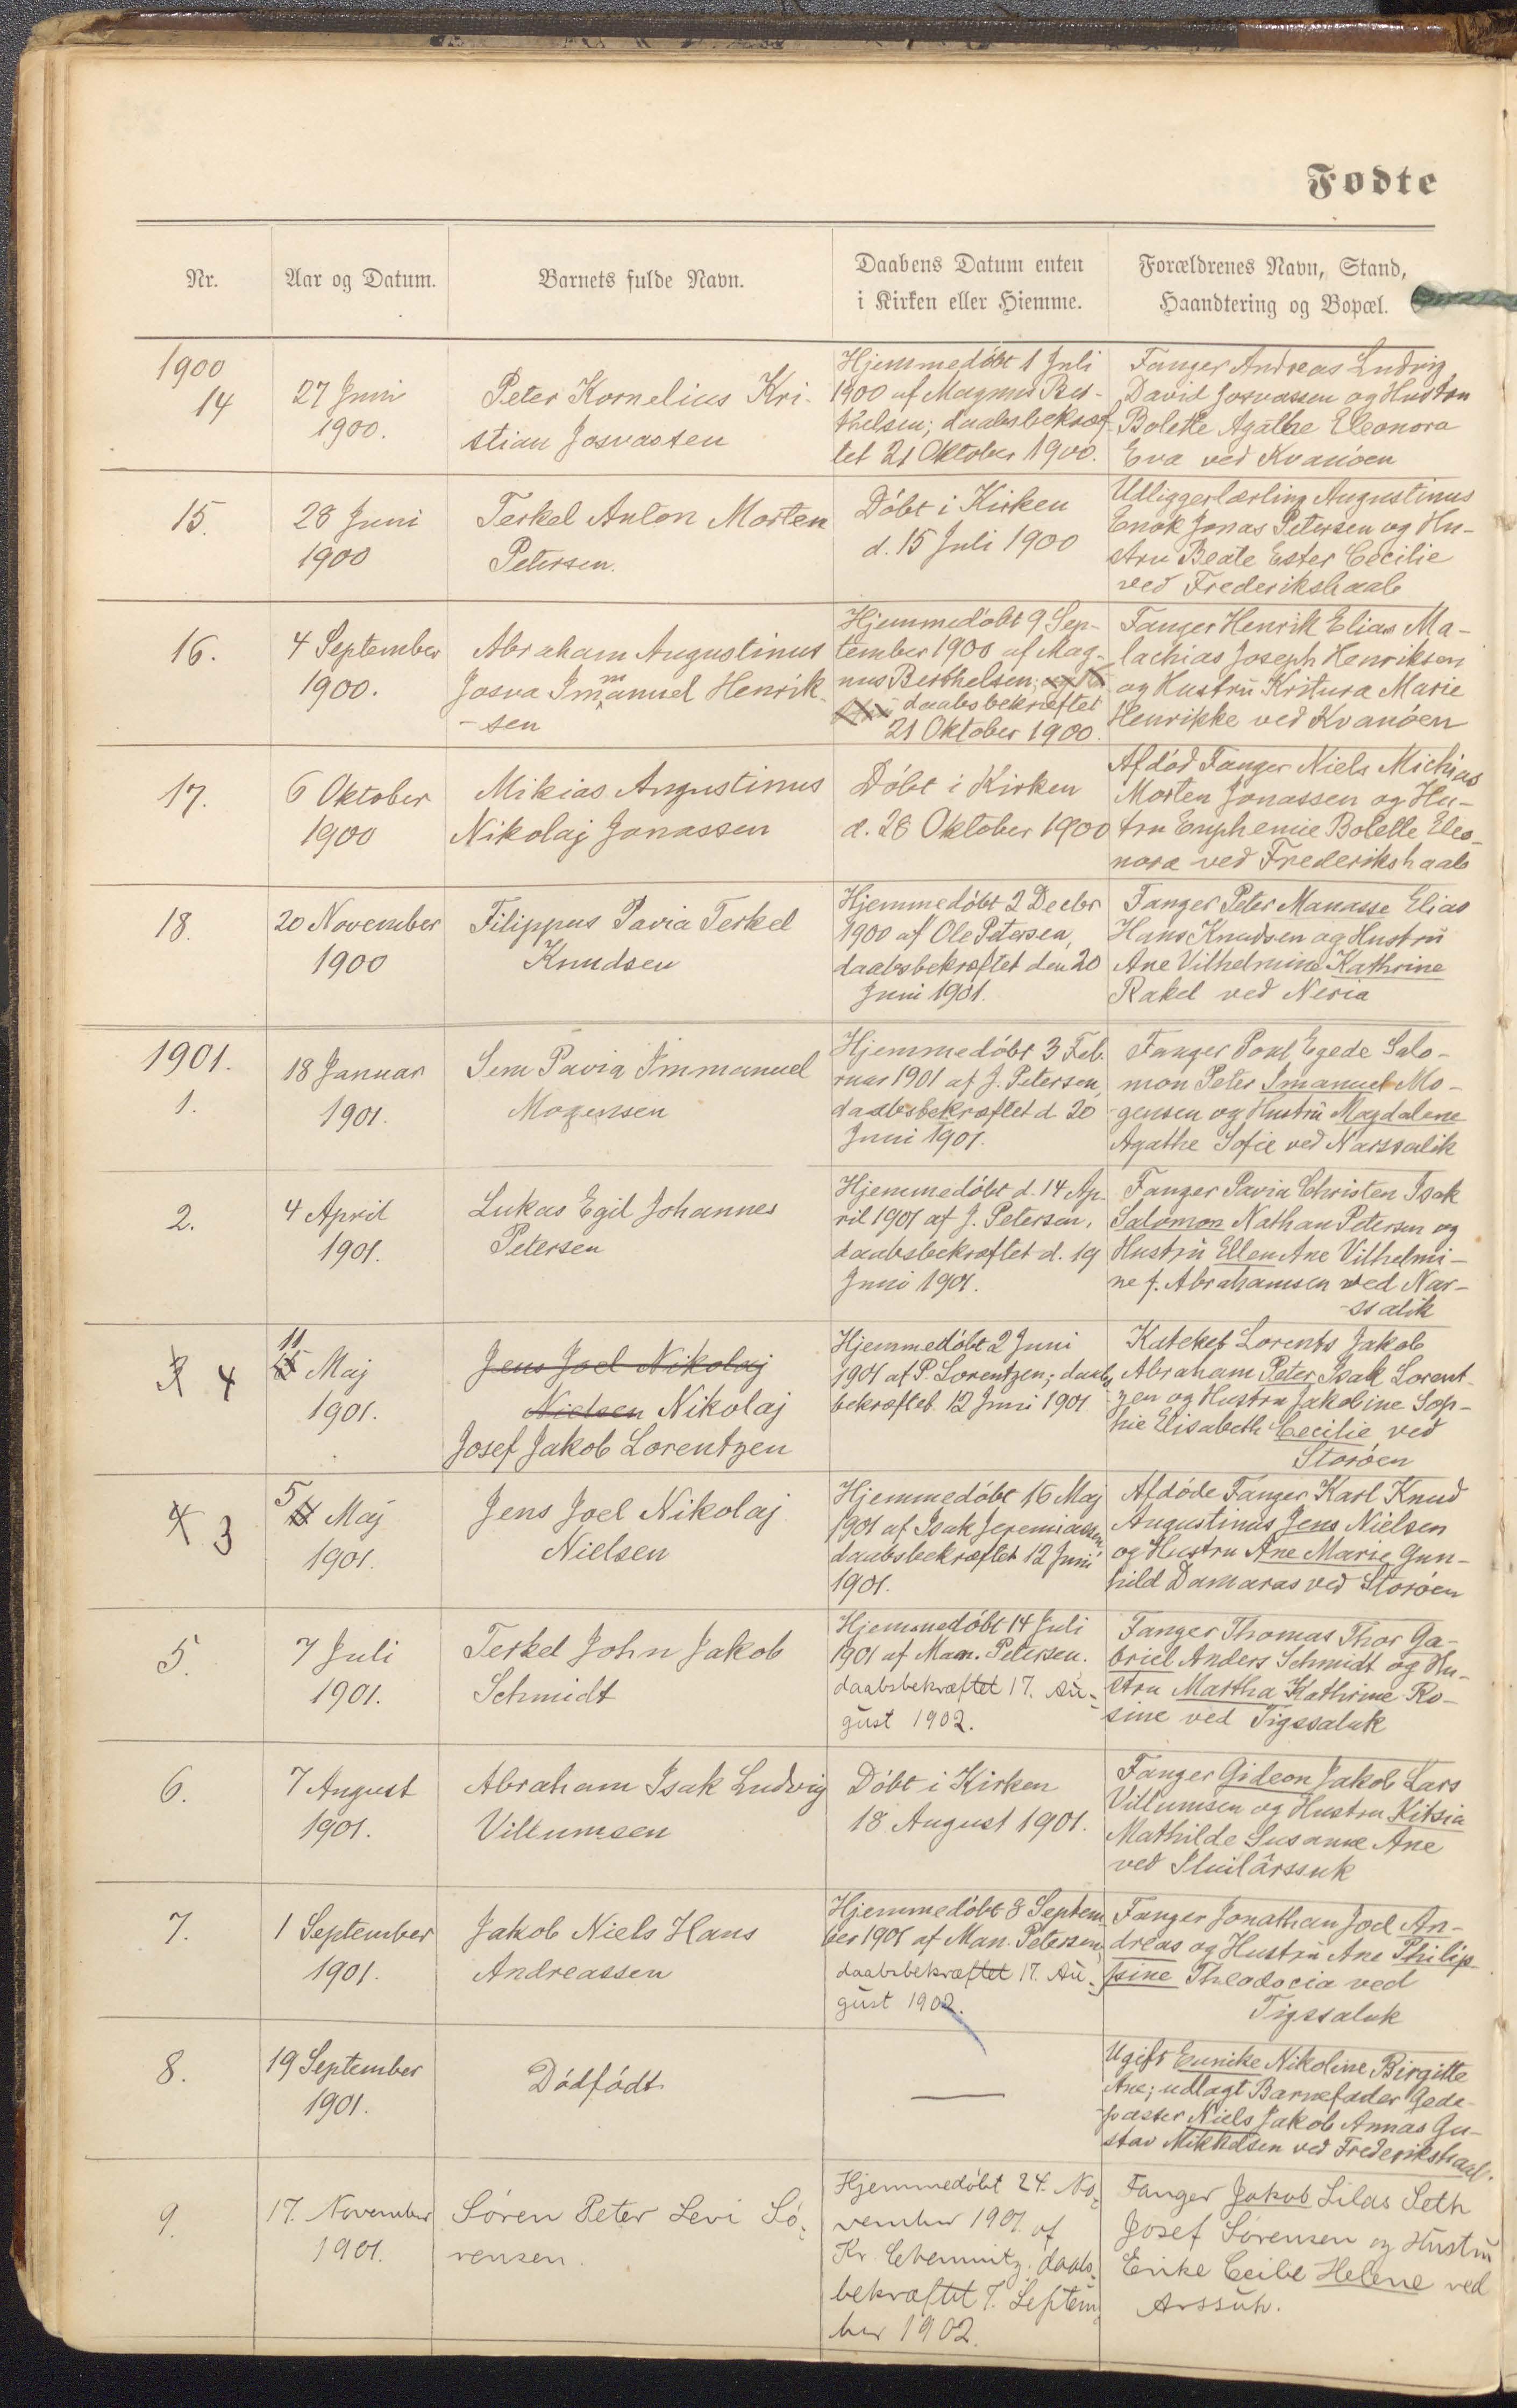 Fødte
Nr.
Aar og Datum.
Barnets fulde Navn.
Daabens Datum enten
i Kirken eller Hiemme.
Forældrenes Navn, Stand,
Haandtering og Bopæl.
1900
14
27 Juni
1900.
Peter Kornelius Kri-
stian Josvassen
Hjemmedöbt 1 Juli
1900 af Magnus Ber-
thelsen; daabsbekræf-
tet 21 Oktober 1900.
Fanger Andreas Ludvig
David Josvassen og Hustru
Bolette Agathe Eleonora
Eva ved Kvanöen
15.
28 Juni
1900
Terkel Anton Morten
Petersen.
Döbt i Kirken
d. 15 Juli 1900
Udliggerlærling Augustinus
Enok Jonas Petersen og Hu-
stru Beate Ester Cecilie
ved Frederikshaab
16.
4 September
1900.
Abraham Augustinus
Josva Immanuel Henrik-
-sen
Hjemmedöbt 9 Sep-
tember 1900 af Mag-
nus Berthelsen;
daabsbekræftet
21 Oktober 1900.
Fanger Henrik Elias Ma-
lachias Joseph Henriksen
og Hustru Kritura Marie
Henrikke ved Kvanöen
17.
6 Oktober
1900
Mikias Augustinus
Nikolaj Jonassen
Döbt i Kirken
d. 28 Oktober 1900
Afdöd Fanger Niels Michias
Morten Jonassen og Hu-
tru Euphemie Bolette Eleo-
nora ved Frederikshaab
18.
20 November
1900
Filippus Pavia Terkel
Knudsen
Hjemmedöbt 2 Decbr
1900 af Ole Petersen,
daabsbekræftet den 20
Juni 1901.
Fanger Peter Manasse Elias
Hans Knudsen og Hustru
Ane Vilhelmine Kathrine
Rakel ved Neria
1901.
1.
18 Januar
1901.
Sem Pavia Immanuel
Mogensen
Hjemmedöbt 3 Feb.
ruar 1901 af J. Petersen,
daabsbekræftet d 20
Juni 1901.
Fanger Poul Egede Salo-
mon Peter Imanuel Mo-
gensen og Hustru Magdalene
Agathe Sofie ved Narssalik
2.
4 April
1901.
Lukas Egil Johannes
Petersen
Hjemmedöbt d. 14 Ap-
ril 1901 af J. Petersen,
daabsbekræftet d. 19
Juni 1901.
Fanger Pavia Christen Isak
Salomon Nathan Petersen og
Hustru Ellen Ane Vilhelmi-
ne f. Abrahamsen ved Nar-
-ssalik
3 4
11
Maj
1901.
Jens Joel Nikolaj
Nielsen Nikolaj
Josef Jakob Lorentzen
Hjemmedöbt 2 Juni
1901 af P. Lorentzen; daabs
bekræftet 12 Juni 1901
Kateket Lorents Jakob
Abraham Peter Isak Lorent-
zen og Hustru Jakobine Sop-
hie Elisabeth Cecilie ved
Storöen
4 3
5
Maj
1901.
Jens Joel Nikolaj
Nielsen
Hjemmedöbt 16 Maj
1901 af Isak Jeremiassen,
daabsbekræftet 12 Juni
1901.
Afdöde Fanger Karl Knud
Augustinus Jens Nielsen
og Hustru Ane Marie Gun-
hild Damaras ved Storöen
5.
7 Juli
1901.
Terkel John Jakob
Schmidt
Hjemmedöbt 14 Juli
1901 af Man. Petersen.
daabsbekræftet 17. Au-
gust 1902.
Fanger Thomas Thor Ga-
briel Anders Schmidt og Hu-
stru Martha Kathrine Ro-
sine ved Tigssaluk
6.
7 August
1901.
Abraham Isak Ludvig
Villumsen
Döbt i Kirken
18 August 1901.
Fanger Gideon Jakob Lars
Villumsen og Hustru Kitsia
Mathilde Susanne Ane
ved Iluilârssuk
7.
1 September
1901.
Jakob Niels Hans
Andreassen
Hjemmedöbt 8 Septem
ber 1901 af Man. Petersen,
daabsbekræftet 17. Au-
gust 1902.
Fanger Jonathan Joel An-
dreas og Hustru Ane Philip-
pine Theodocia ved
Tigssaluk
8.
19 September
1901.
Dödfödt
Ugift Eunike Nikoline Birgitte
Ane; udlagt Barnefader Gede-
passer Niels Jakob Annas Gu-
stav Mikkelsen ved Frederikshaab.
9.
17. November
1901.
Sören Peter Levi Sö-
rensen.
Hjemmedöbt 24. No-
vember 1901 af
Kr. Chemnitz. daabs-
bekræftet 7. Septem-
ber 1902.
Fanger Jakob Silas Seth
Josef Sörensen og Hustru
Enike Helene ved
Arssuk.